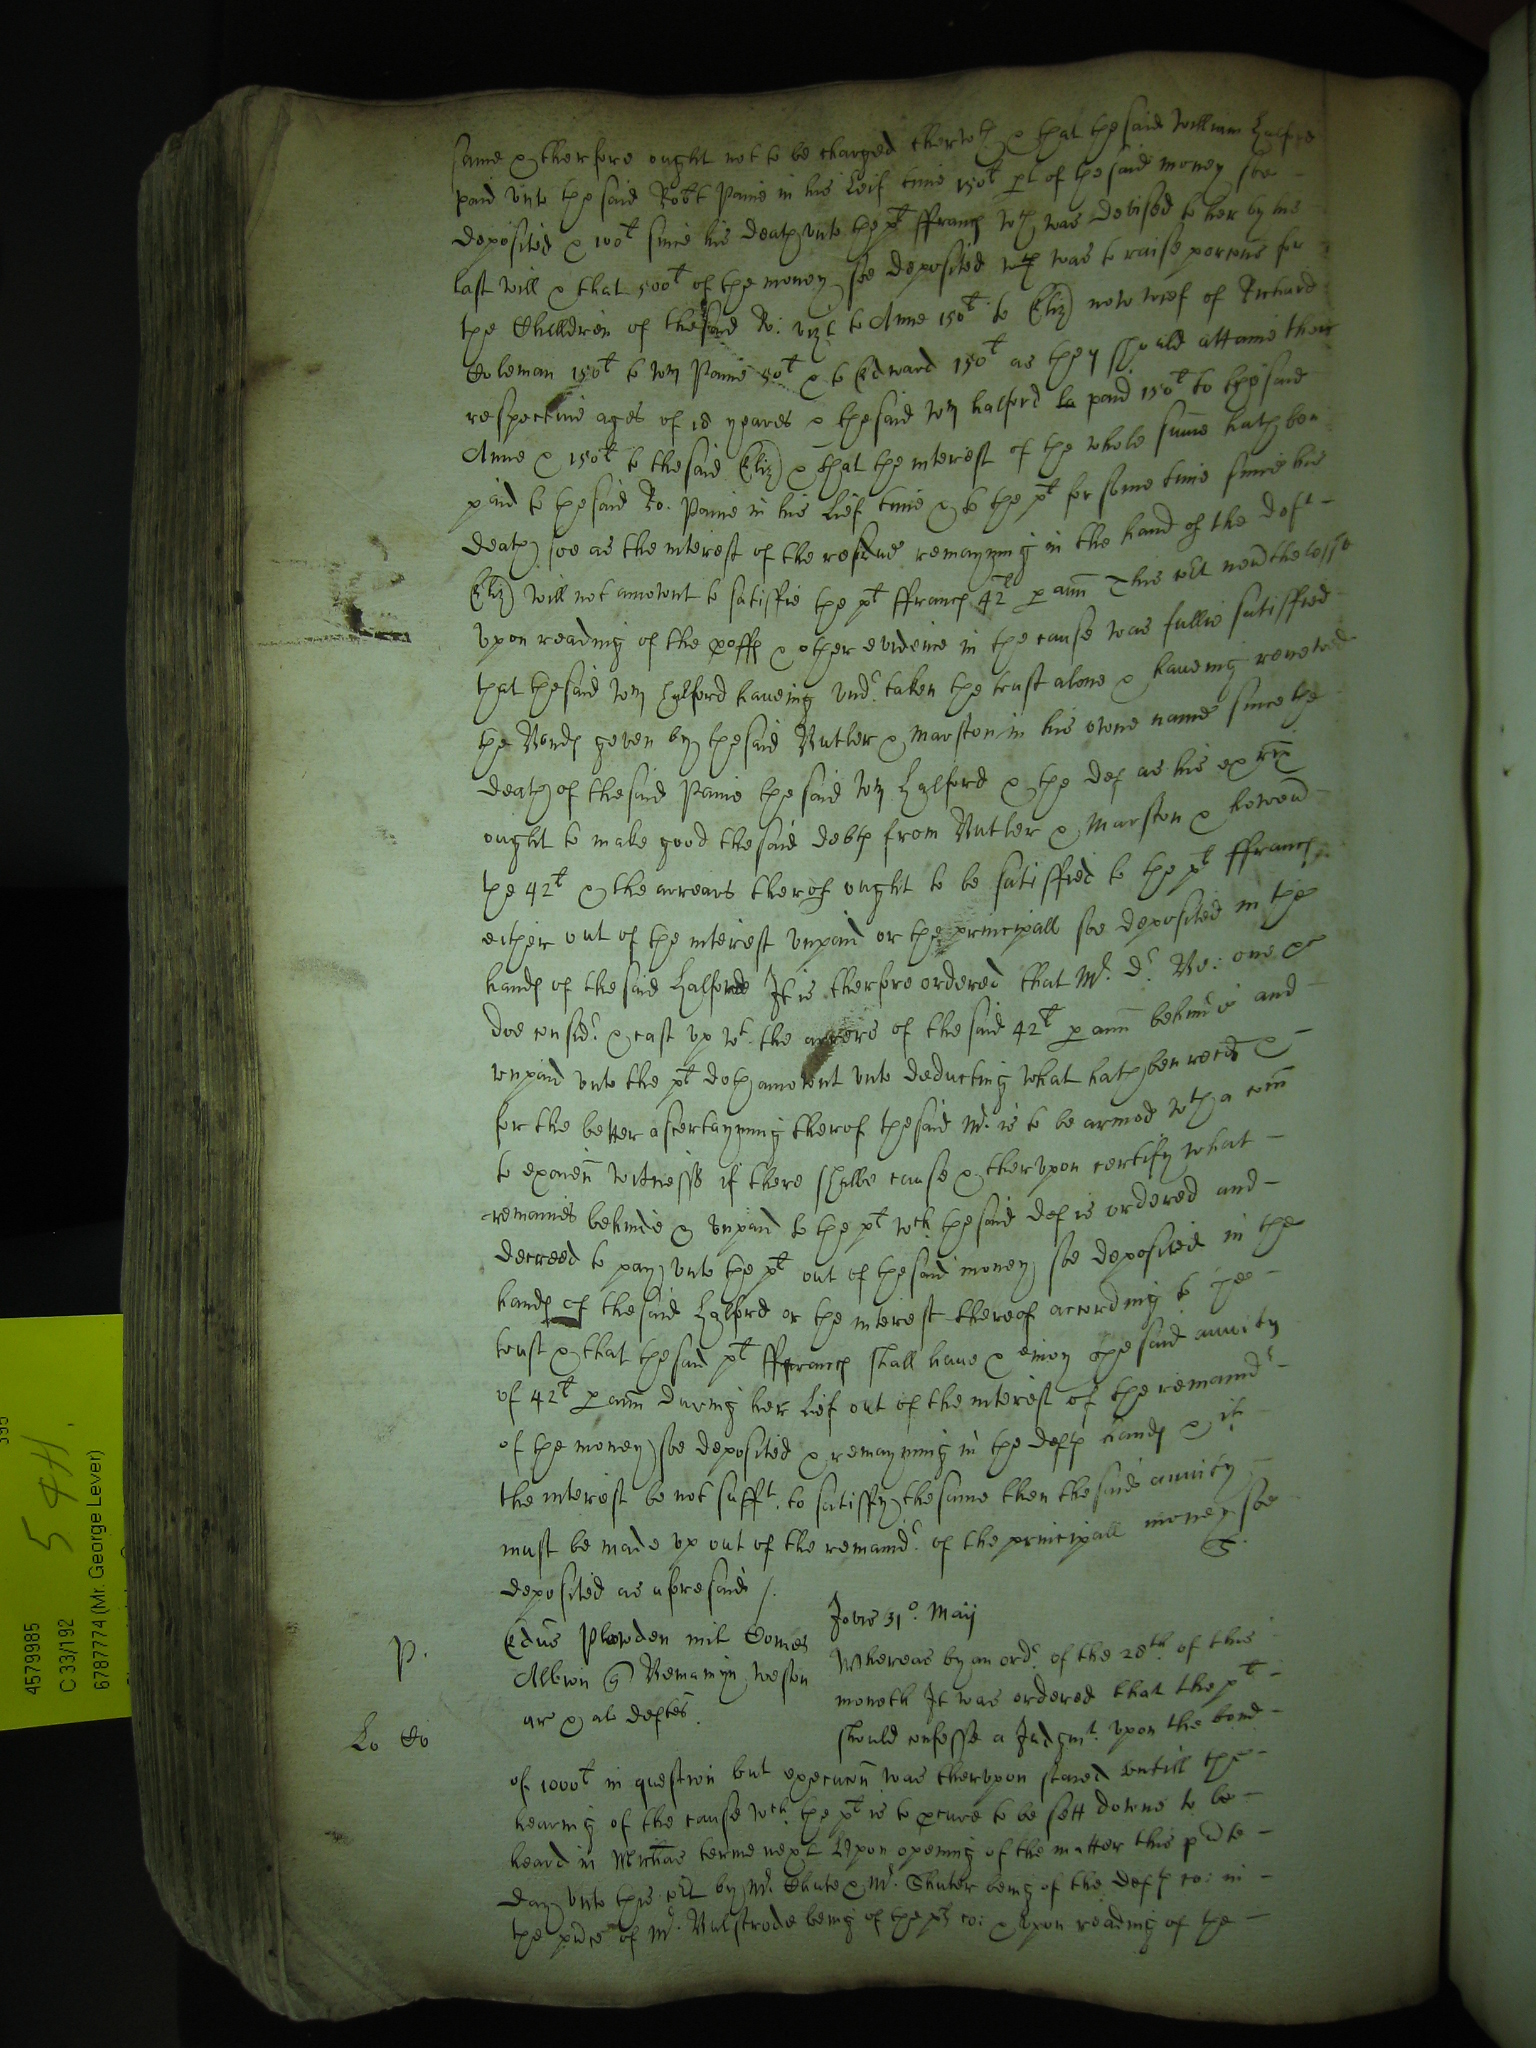 same & therfore ought not to be charged therwth & that the said William Halford
paid unto the said Robt Paine in his Leif time 150l pt of the said money soe
deposited & 100l since his death unto the plt ffrancs wch was devised to her by his
last will & that 500l of the money soe deposited wch was to raise porcons for
the Children of the said Ro: vizt to Anne 150l to Eliz now wief of Richard
Coleman 150l to Wm Paine 50l & to Edward 150l as they should attaine their
respective ages of 18 yeares & the said Wm halford paid 150l to the said
Anne & 150l to the said Eliz & that the interest of the whole sume hath ben
paid to the said Ro. Paine in his Lief time & to the plt for some time since his
death soe as the interest of the residue remayning in the hand of the deft
Eliz will not amount to satisfie the plt ffrancs 42l p ann This Crt nevthelesse
upon reading of the proffs & other evidence in the cause was fullie satisfied
that the said Wm Halford haveing undrtaken the trust alone & haveing renewed
the Bonds geven by the said Butler & Marston in his owne name since the
death of the said Paine the said Wm Halford & the def as his exrix
ought to make good the said debts from Butler & Marston & howevr
the 42l & the arrears therof ought to be satisfied to the plt ffrancs
either out of the interest unpaid or the principall soe deposited in the
hands of the said Halford It is therfore ordered that Mr. Dr. Be: one &c
doe considr & cast up wt the arrers of the said 42l p ann behinde and
unpaid unto the plt doth amount unto deducting what hath ben recd &
for the better ascertayning therof the said Mr. is to be armed wth a com
to examen witnesses if there shalbe cause & therupon certify what
remaines behinde & unpaid to the plt wch the said def is ordered and
decreed to pay unto the plt out of the said money soe deposited in the
hands of the said Halford or the interest thereof according to the
trust & that the said plt ffrancs shall have & enioy the said anuity
of 42l p ann during her Lief out of the interest of the remaindr
of the money soe deposited & remayning in the defts hands & if
the interest be not sufft. to satisfy the same then the said anuity
must be made up out of the remaindr of the principall money soe
deposited as aforesaid /.
Jovis 31o. Maij
P.
Edus Plowden mil Comes
Albion q Beniamyn Weston
ar & al defts.
Whereas by an ordr of the 28th. of this
moneth It was ordered that the plt
should confesse a Judgmt. upon the bond
Lo Co
of 1000l in question but execucon was therupon staied untill the
hearing of the cause wch the plt is to pcure to be sett downe to be
heard in Michas terme next Upon opening of the matter this pnte
day unto this Crt by Mr. Chute & Mr. Shuter being of the defts co: in
the pnce of Mr. Bulstrode being of the plts co: & upon reading of the
4579985
C 33/192
6787774 (Mr. George Lever)
5 4H.